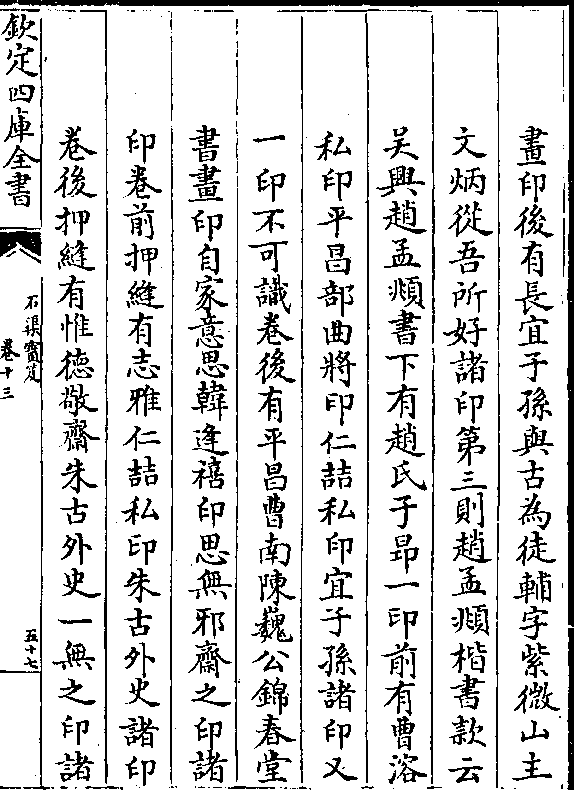 畫印後有長宜子孫與古為徒輔字紫微山主
文炳從吾所好諸印第三則趙孟頫楷書款云
吳興趙孟頫書下有趙氏子昂一印前有曹溶
私印平昌部曲將印仁喆私印宜子孫諸印又
一印不可識卷後有平昌曹南陳巍公錦春堂
書畫印自家意思韓逢禧印思無邪齋之印諸
印卷前押縫有志雅仁喆私印朱古外史諸印
卷後押縫有惟德敬齋朱古外史一無之印諸
欽定四庫全書
石渠寶笈
卷十三
五十七